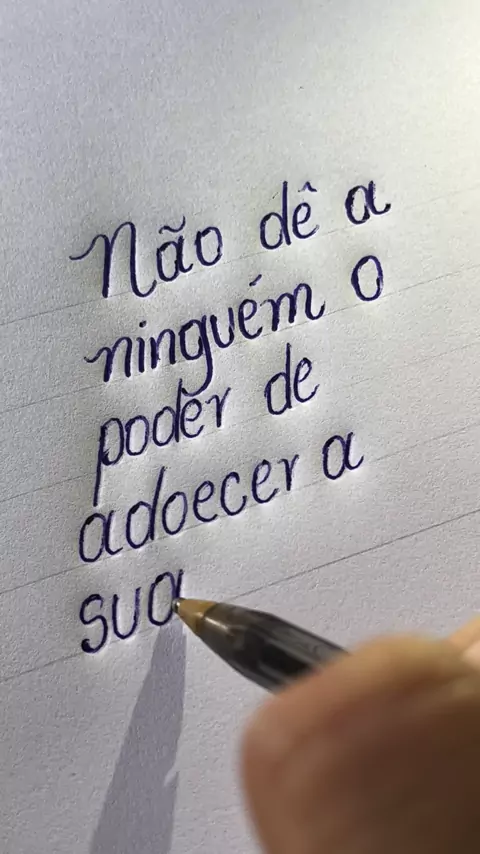 Não dê a
ninguém o
poder de
adoecer a
sua